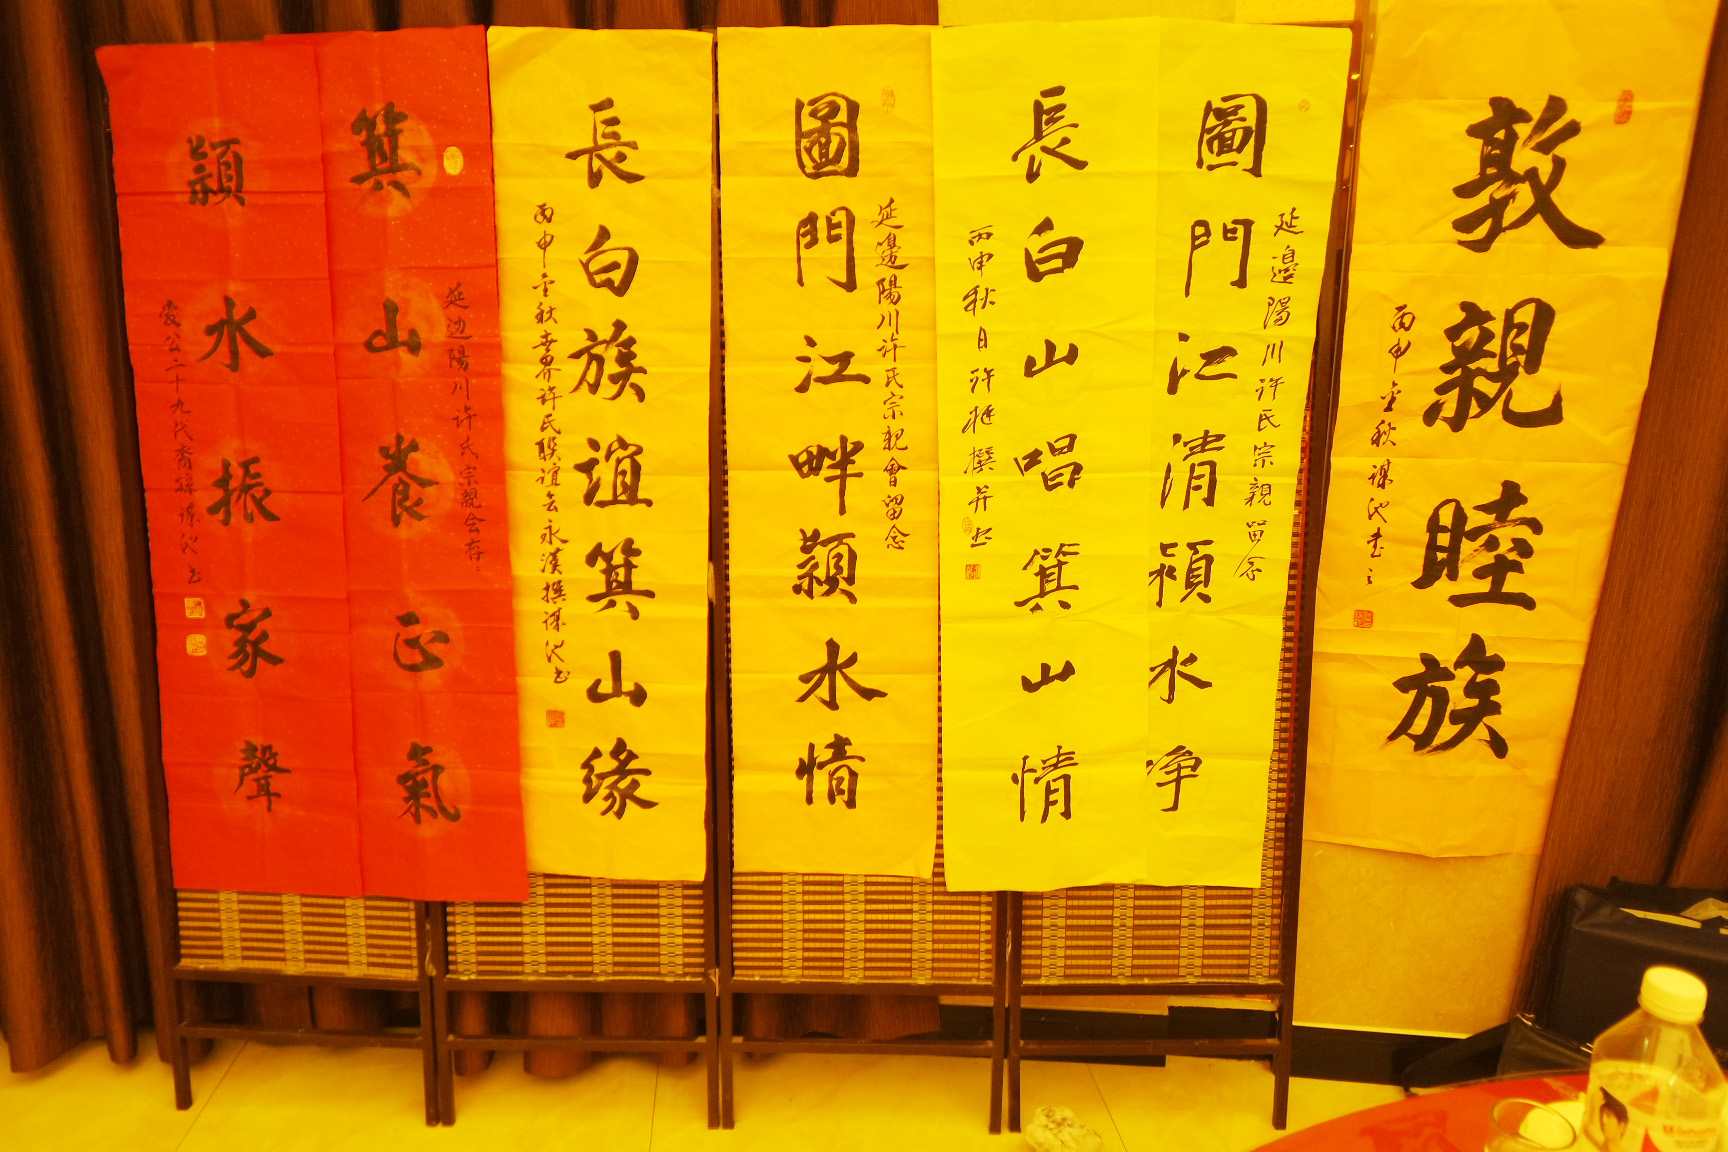 敦親睦族
丙申金秋謀池書
延邊陽川许氏宗親留念
圖門江清潁水净
長白山唱箕山情
丙申秋日许挺撰并书
延邊陽川许氏宗親會留念
圖門江畔潁水情
長白族誼箕山缘
丙申金秋世界许氏联谊会永漢撰谋池书
延边陽川许氏宗親会存
箕山養正氣
潁水振家聲
爱公二十九代裔孫谋池书